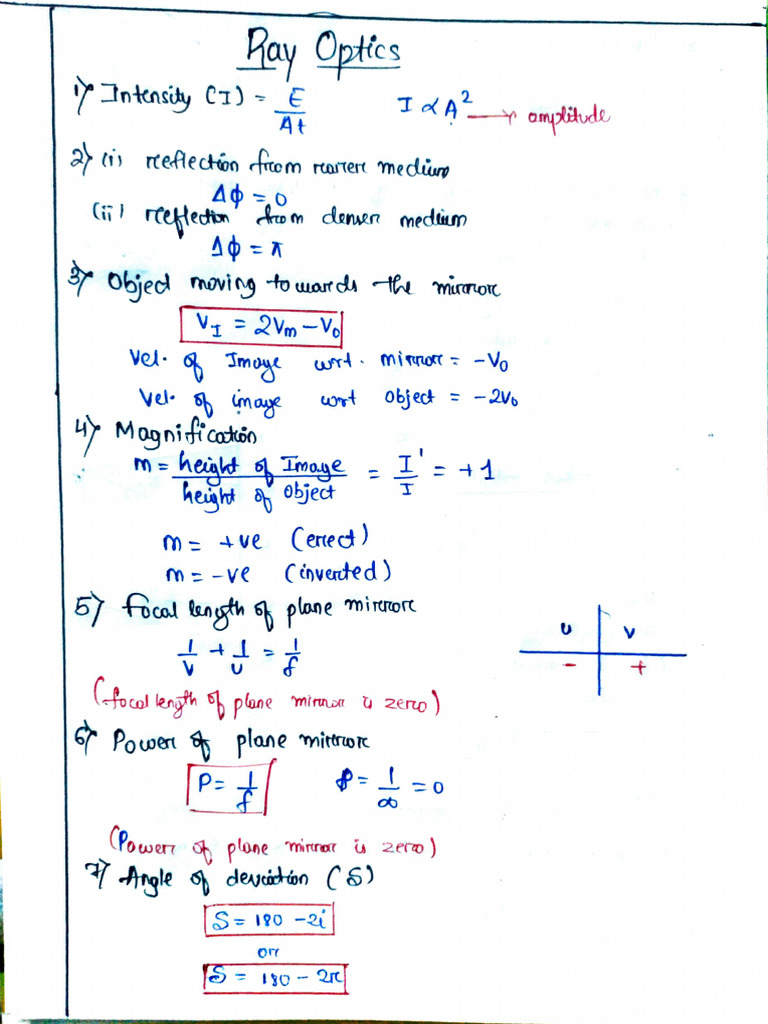 Ray Optics
1) Intensity (I) = E/At    I ∝ A² → amplitude
2) (i) reflection from rarer medium
Δϕ = 0
(ii) reflection from denser medium
Δϕ = π
3) Object moving towards the mirror
V_I = 2V_m - V_0
Vel. of Image wrt. mirror = -V_0
Vel. of image wrt object = -2V_0
4) Magnification
m = height of Image / height of Object = I'/I = +1
m = +ve (erect)
m = -ve (inverted)
5) focal length of plane mirror
1/v + 1/u = 1/f
u v
- +
(focal length of plane mirror is zero)
6) Power of plane mirror
P = 1/f    P = 1/∞ = 0
(Power of plane mirror is zero)
7) Angle of deviation (δ)
δ = 180 - 2i
or
δ = 180 - 2r